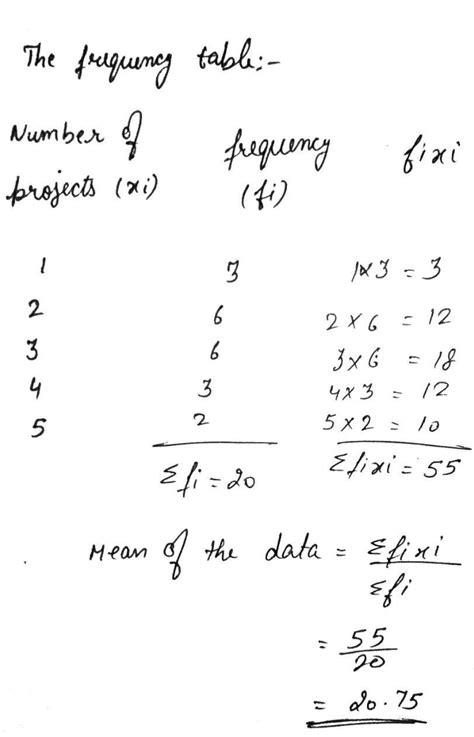 The frequency table:-
Number of frequency fixi
projects (xi) (fi)
1 3 1×3 = 3
2 6 2×6 = 12
3 6 3×6 = 18
4 3 4×3 = 12
5 2 5×2 = 10
Σfi = 20 Σfixi = 55
Mean of the data = Σfixi
Σfi
= 55
20
= 20.75